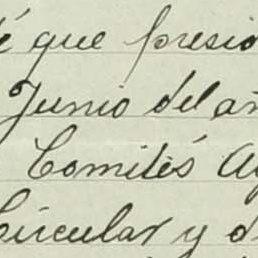 é que presid
Junio del añ
Comités Ag
Circular y d